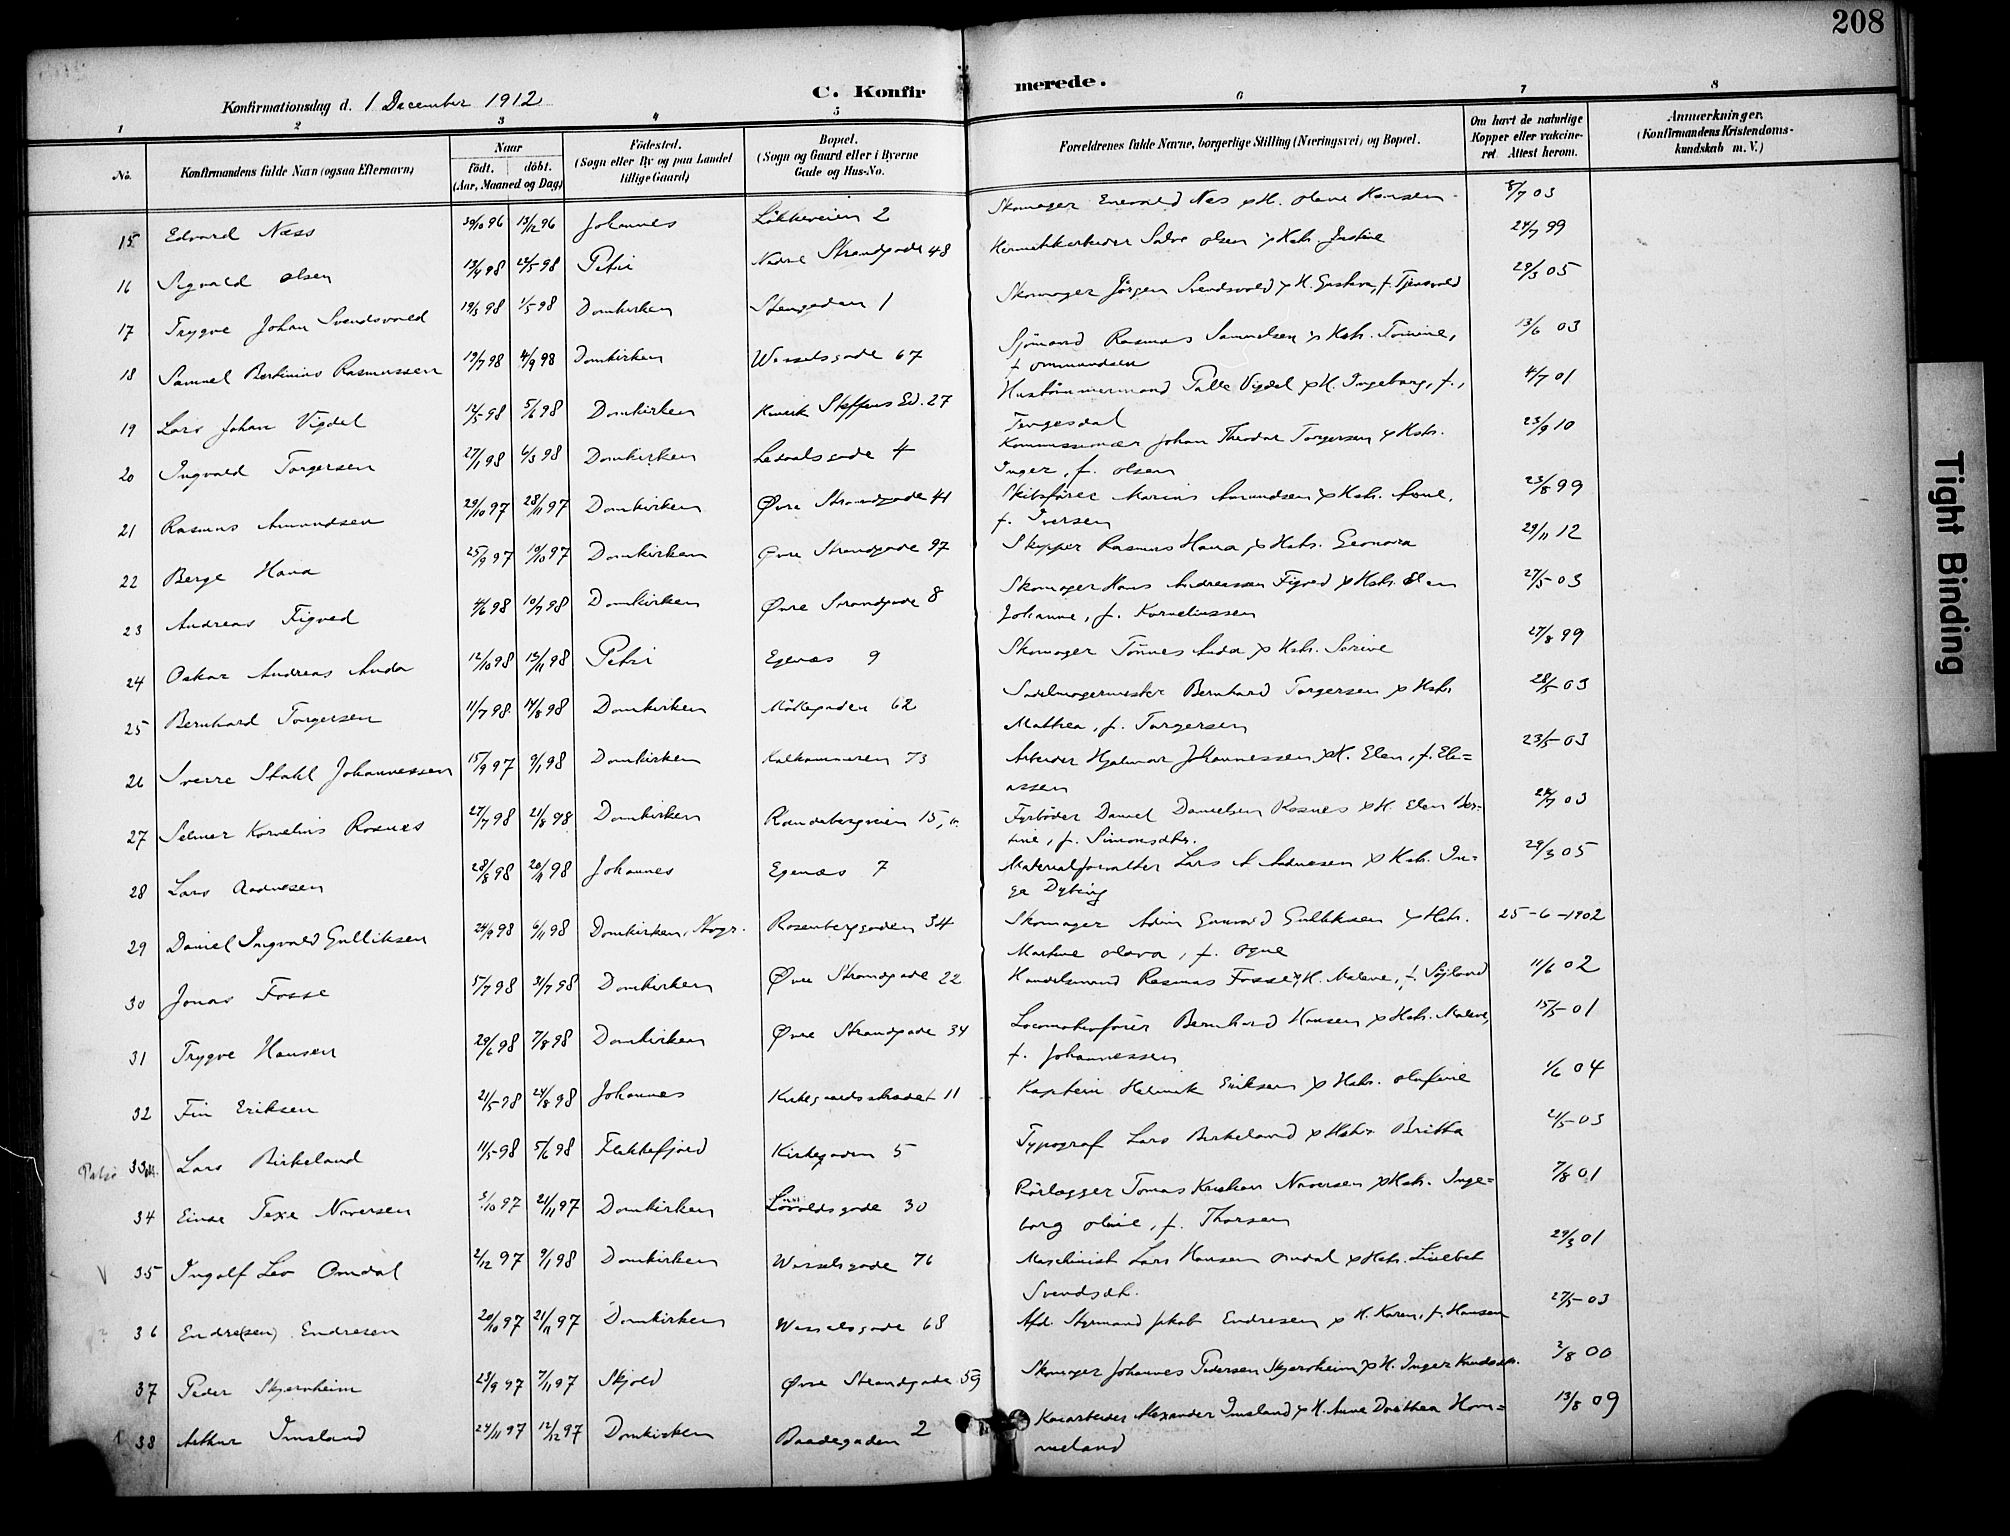 208
C. Konfirmerede.
Konfirmationsdag d. 1 December 1912
1 2 3 4 5 6 7 8
No. Konfirmandens fulde Navn (ogsaa Efternavn) Naar födt. döbt. (Aar, Maaned og Dag) Födested. (Sogn eller By og paa Landet tillige Gaard) Bopæl. (Sogn og Gaard eller i Byerne Gade og Hus-No. Forældrenes fulde Navne, borgerlige Stilling (Næringsvei) og Bopæl. Om havt de naturlige Kopper eller vaccineret. Attest herom. Anmærkninger. (Konfirmandens Kristendomskundskab m. V.)
15 Edvard Næss 30/10 96 13/12 96 Johannes Lökkeveien 2 Skomager Enevald Næs &H. Olene Hansen 8/7 03
16 Sigvald Olsen 13/4 98 22/5-98 Petri Nedre Strandgade 48 Salve Olsen & Hstr. Justine 24/7 99
17 Trygve Johan Svendsvold 19/3 98 1/5-98 Domkirken Stengaden 1 Skomager Jörgen Svendsvold & H. Gustava, f. 29/3 05
18 Samuel Bertinius Rasmussen 19/7 98 4/9 98 Domkirken Wesselsgade 67 Sjömand Rasmus Samuelsen & Hstr. Tomine,
f. Ommundsen 13/6 03
19 Lars Johan Vigdel 12/5-98 5/6 98 Domkirken 27 Hustömmermand Palle Vigdel &H. Ingeborg, f.,
4/7 01
20 Ingvald Torgersen 27/1 98 6/3 98 Domkirken Ledaalsgade 4 Kommissionær Johan Theodor Torgersen & Hstr.
Inger, f. Olsen 23/9 10
21 Rasmus Amundsen 29/10 97 28/11 97 Domkirken Øvre Strandgade 41 Skibsförer Marius Amundsen & Hstr. Anne,
f. Iversen 23/8 99
22 Berge Hana 25/9 97 10/10 97 Domkirken Øvre Strandgade 97 Skipper Rasmus Hana & Hstr. Leonora 29/11 12
23 Andreas Figved 4/6 98 10/7 98 Domkirken Øvre Strandgade 8 Skomager Hans Andreassen Figved & Hstr. Elen
Johanne, f. Korneliussen 27/5-03
24 Oskar Andreas Anda 12/10 98 13/11 98 Petri Egenæs 9 Skomager Tönnes Anda & Hstr. Serine 27/8 99
25 Bernhard Torgersen 11/7 98 14/8 98 Domkirken Möllegaden 62 Sadelmagermester Bernhard Torgersen & Hstr.
Mathea, f. Torgersen 28/5-03
26 Sverre Stahl Johannessen 15/9 97 9/1 98 Domkirken Kalhammeren 73 Arbeider Hjalmar Johannessen &H. Elen, f. Ele=
assen 23/5-03
27 Selmer Kornelius Rosnes 27/7 98 21/8 98 Domkirken Randebergveien 15, Fyrböder Daniel Danielsen Rosnes & H. Elen Ber=
tine, f. Simonsdtr. 03
28 Lars Aadnesen 28/8 98 20/11 98 Johannes Egenæs 7 Materialforvalter Lars A Aadnesen & Hstr. In=
ga Dybing 29/3 05
29 Daniel Ingvald Gulliksen 24/9 98 6/11 98 Domkirken, Stvgr. Rosenberggaden 34 Skomager Adin Gunvald Gulliksen & Hstr.
Martine Olava, f. Ogne 25-6-1902
30 Jonas Fosse 5/7 98 31/7 98 Domkirken Øvre Strandgade 22 Handelsmand Rasmus Fosse & H. Malene, f. Söjland 11/6 02
31 Trygve Hansen 29/6 98 7/8 98 Domkirken Øvre Strandgade 34 Locomotivförer Bernhard Hansen & Hstr. Malene,
f. Johannessen 15/5-01
32 Fin Eriksen 21/5-98 24/8 98 Johannes 11 Kaptein Helmik Eriksen & Hstr. Olufine 1/6 04
33 Lars Birkeland 11/5-98 5/6 98 Flekkefjord Kirkegaden 5 Typograf Lars Birkeland & Hstr Britha 21/5-03
34 Einar Naversen 3/10 97 21/11 97 Domkirken Lövoldsgade 30 Rörlægger Tomas Kristian Naversen & Hstr. Inge=
borg Oline, f. Thorsen 7/8 01
V 35 Ingolf Leo Omdal 2/12 97 9/1 98 Domkirken Wesselsgade 76 Maschinist Lars Hansen Omdal & Hstr. Lisebet
Svendsdtr. 29/3 01
? 36 Endre(sen) Endresen 20/10 97 21/11 97 Domkirken Wesselsgade 68 Afd. Styrmand Jakob Endresen & H. Karen, f. Hansen 27/5-03
37 Peder Skjernheim 23/9 97 7/11 97 Skjold Øvre Strandgade 59 Skomager Johannes Pedersen Skjernheim & H. Inger Knudsdtr. 2/8 00
38 Arthur Imsland 24/11 97 12/12 97 Domkirken Baadegaden 2 Alexander Imsland & H. Anne Dorthea Hom=
meland 13/8 09
Tight Binding